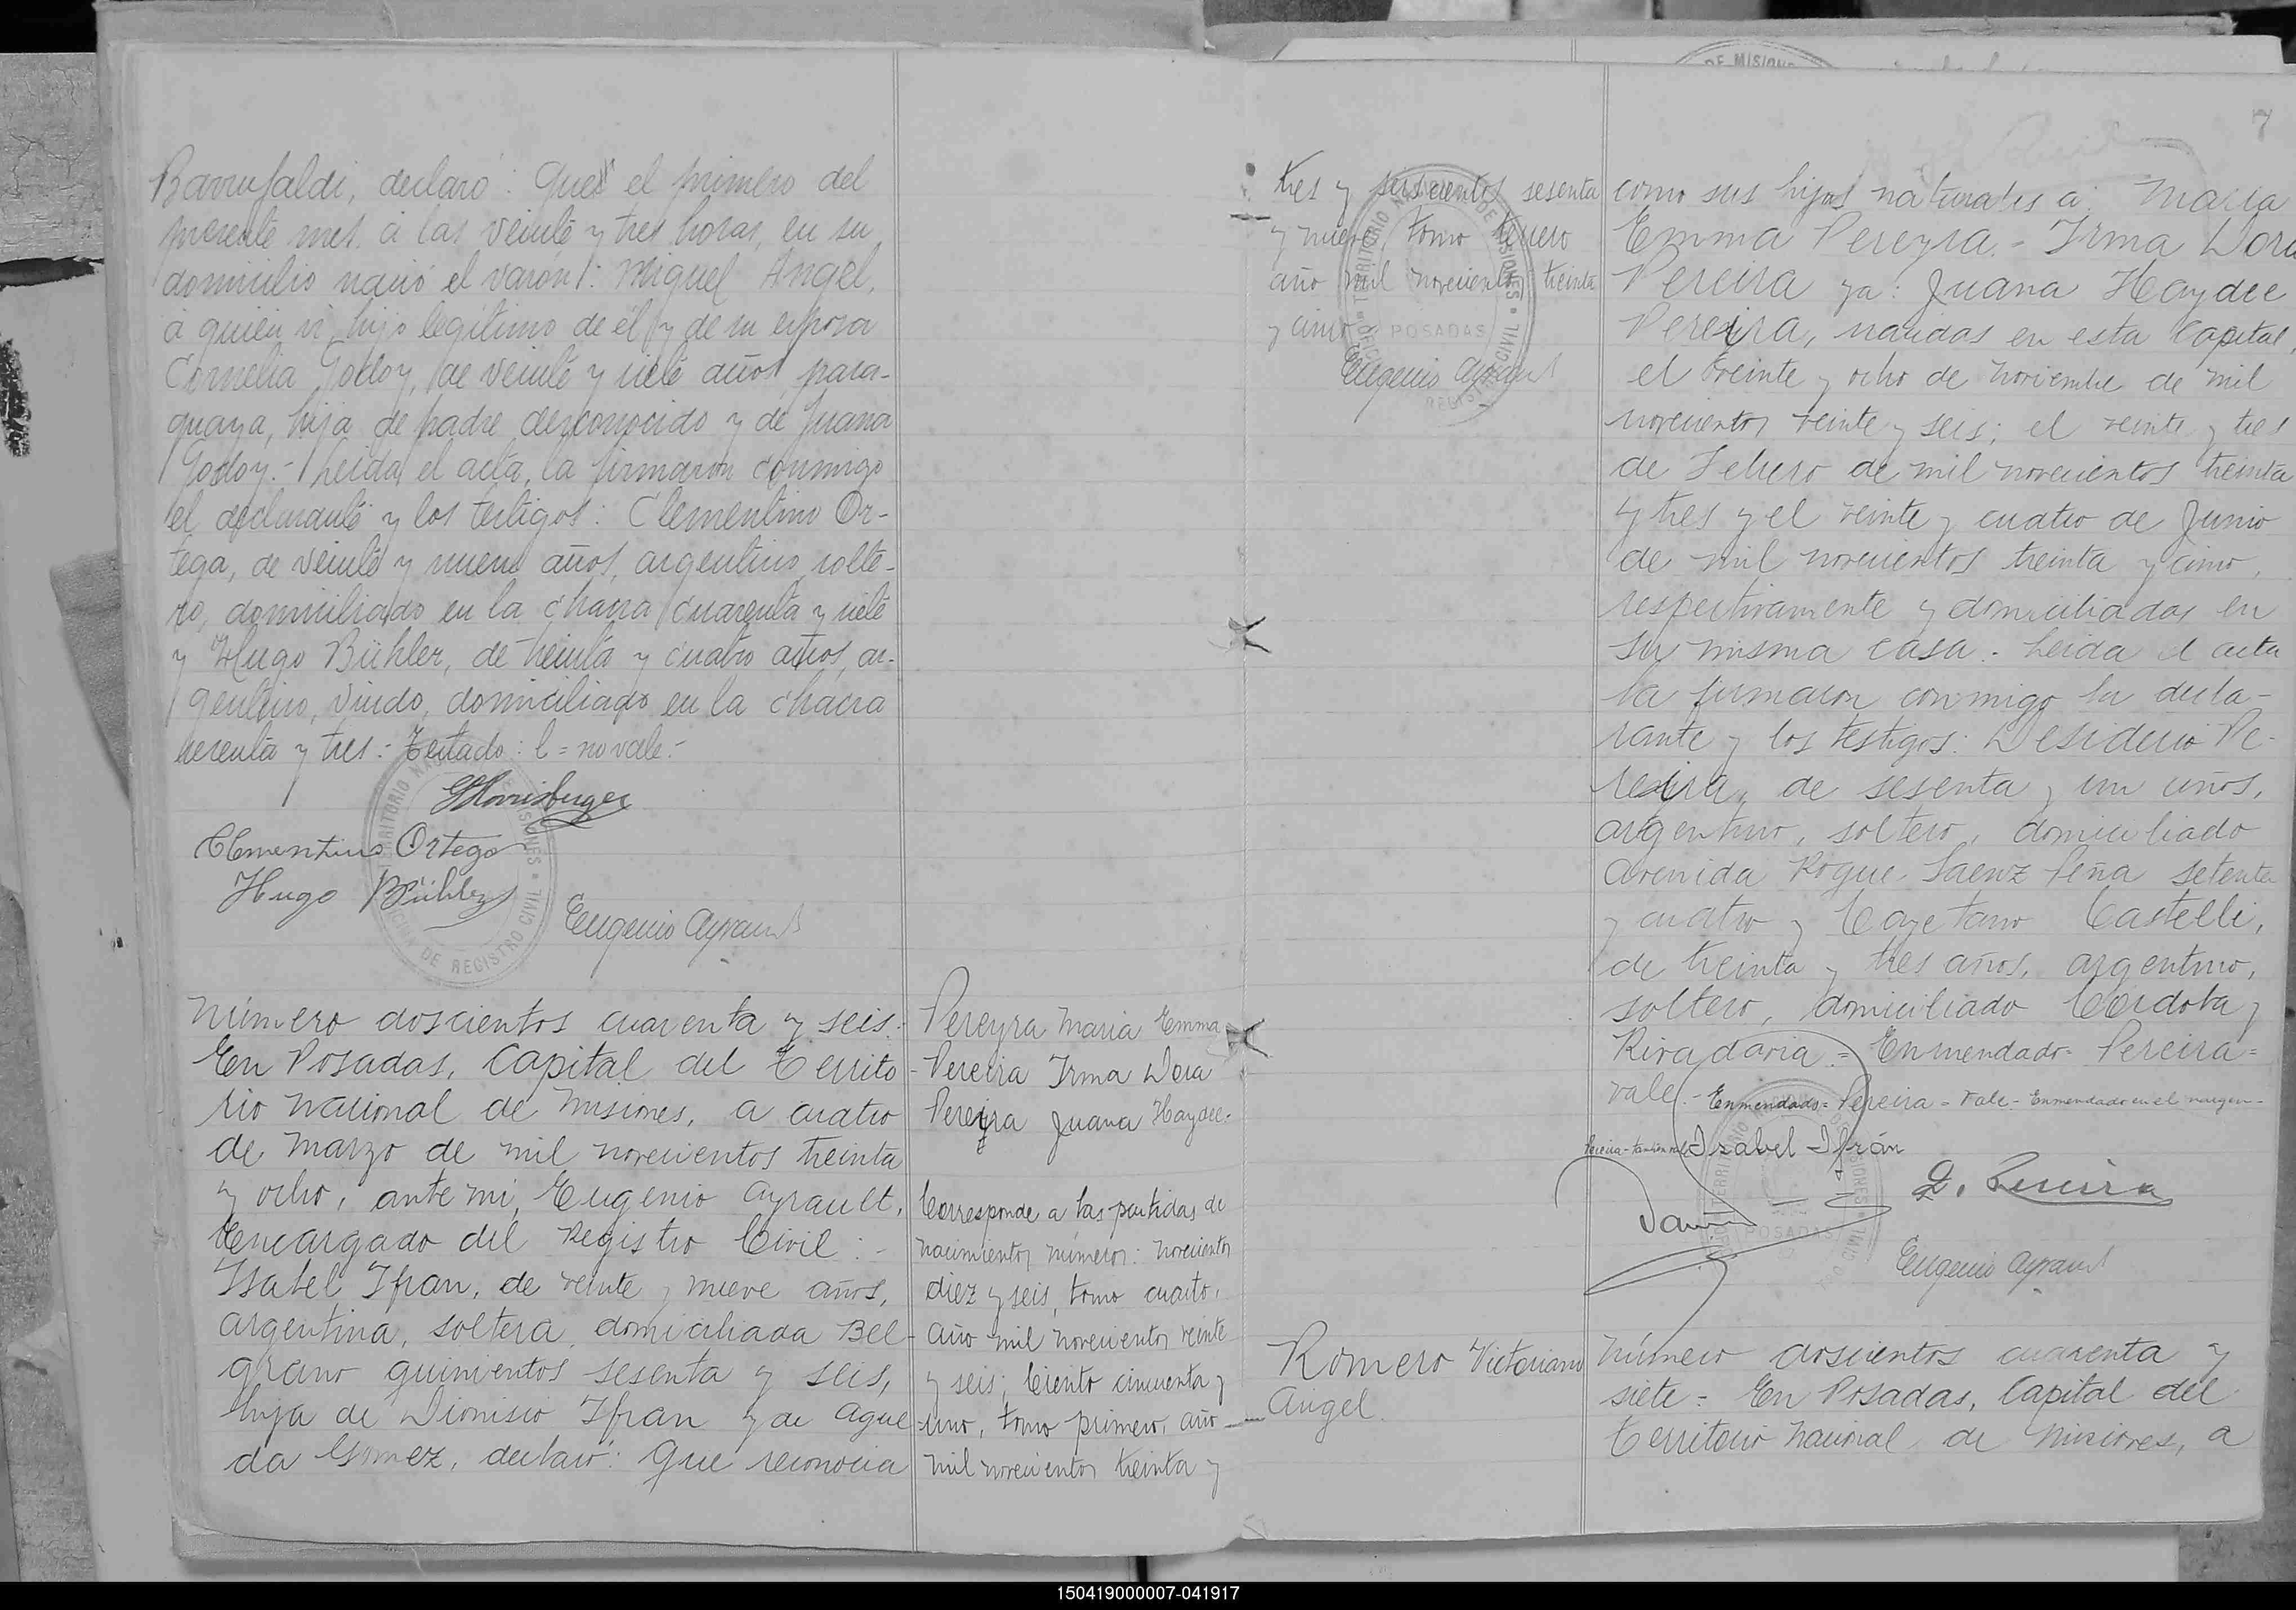 Barrufaldi, declaró: Que el primero del
presente mes, a las veinte y tres horas, en su
domicilio nació el varón: Miguel Angel,
a quien vi, hijo legítimo de él y de su esposa
Cornelia Godoy, de veinte y siete años, para-
guaya, hija de padre desconocido y de Juana
Godoy.- Leida el acta, la firmaron conmigo
el declarante y los testigos: Clementino Or-
tega, de veinte y nueve años, argentino, solte-
ro, domiciliado en la chacra cuarenta y siete
y Hugo Bühler, de treinta y cuatro años, ar-
gentino, viudo, domiciliado en la chacra
y tres.- Testado: l = no vale.-
Clementino Ortega
Hugo Bühler
Eugenio Ayrault
TERRITORIO NACIONAL DE MISIONES
DE REGISTRO CIVIL
Número doscientos cuarenta y seis.
En Posadas, Capital del Territo-
rio Nacional de Misiones, a cuatro
de Marzo de mil novecientos treinta
y ocho, ante mi, Eugenio Ayrault,
Encargado del Registro Civil:-
Isabel Ifran, de veinte y nueve años,
argentina, soltera, domiciliada Bel-
grano quinientos sesenta y seis,
hija de Dionisio Ifran y de Ague
da Gomez, declaró: Que reconocia
Pereyra Maria Emma
Pereira Irma Dora
Pereira Juana Haydee.
Corresponde a las partidas de
nacimientos números: novecientos
diez y seis, tomo cuarto,
año mil novecientos veinte
y seis; Ciento cincuenta y
uno, tomo primero, año
mil novecientos treinta y
7
tres y seiscientos sesenta
y nueve, tomo tercero
año mil novecientos treinta
y cinco
Eugenio Ayrault
POSADAS
como sus hijas naturales a: Maria
Emma Pereyra.- Irma Dora
Pereira ya: Juana Haydee
Pereira, nacidas en esta Capital,
el veinte y ocho de Noviembre de mil
novecientos veinte y seis; el veinte y tres
de Febrero de mil novecientos treinta
y tres y el veinte y cuatro de Junio
de mil novecientos treinta y cinco,
respectivamente y domiciliadas en
su misma casa.- Leida el acta
la firmaron conmigo la decla-
rante y los testigos: Desiderio Pe-
reira, de sesenta y un años,
argentino, soltero, domiciliado
Avenida Roque Saenz Peña setenta
y cuatro y Cayetano Castelli,
de treinta y tres años, argentino,
soltero, domiciliado Cordoba y
Rivadavia.= Enmendado= Pereira=
vale.- Enmendado= Pereira = Vale - Enmendado en el margen-
Pereira - también vale
Isabel Ifrán
D. Pereira
POSADAS
Eugenio Ayrault
Romero Victoriano
Angel.
Número doscientos cuarenta y
siete = En Posadas, Capital del
Territorio Nacional de Misiones, a
150419000007-041917